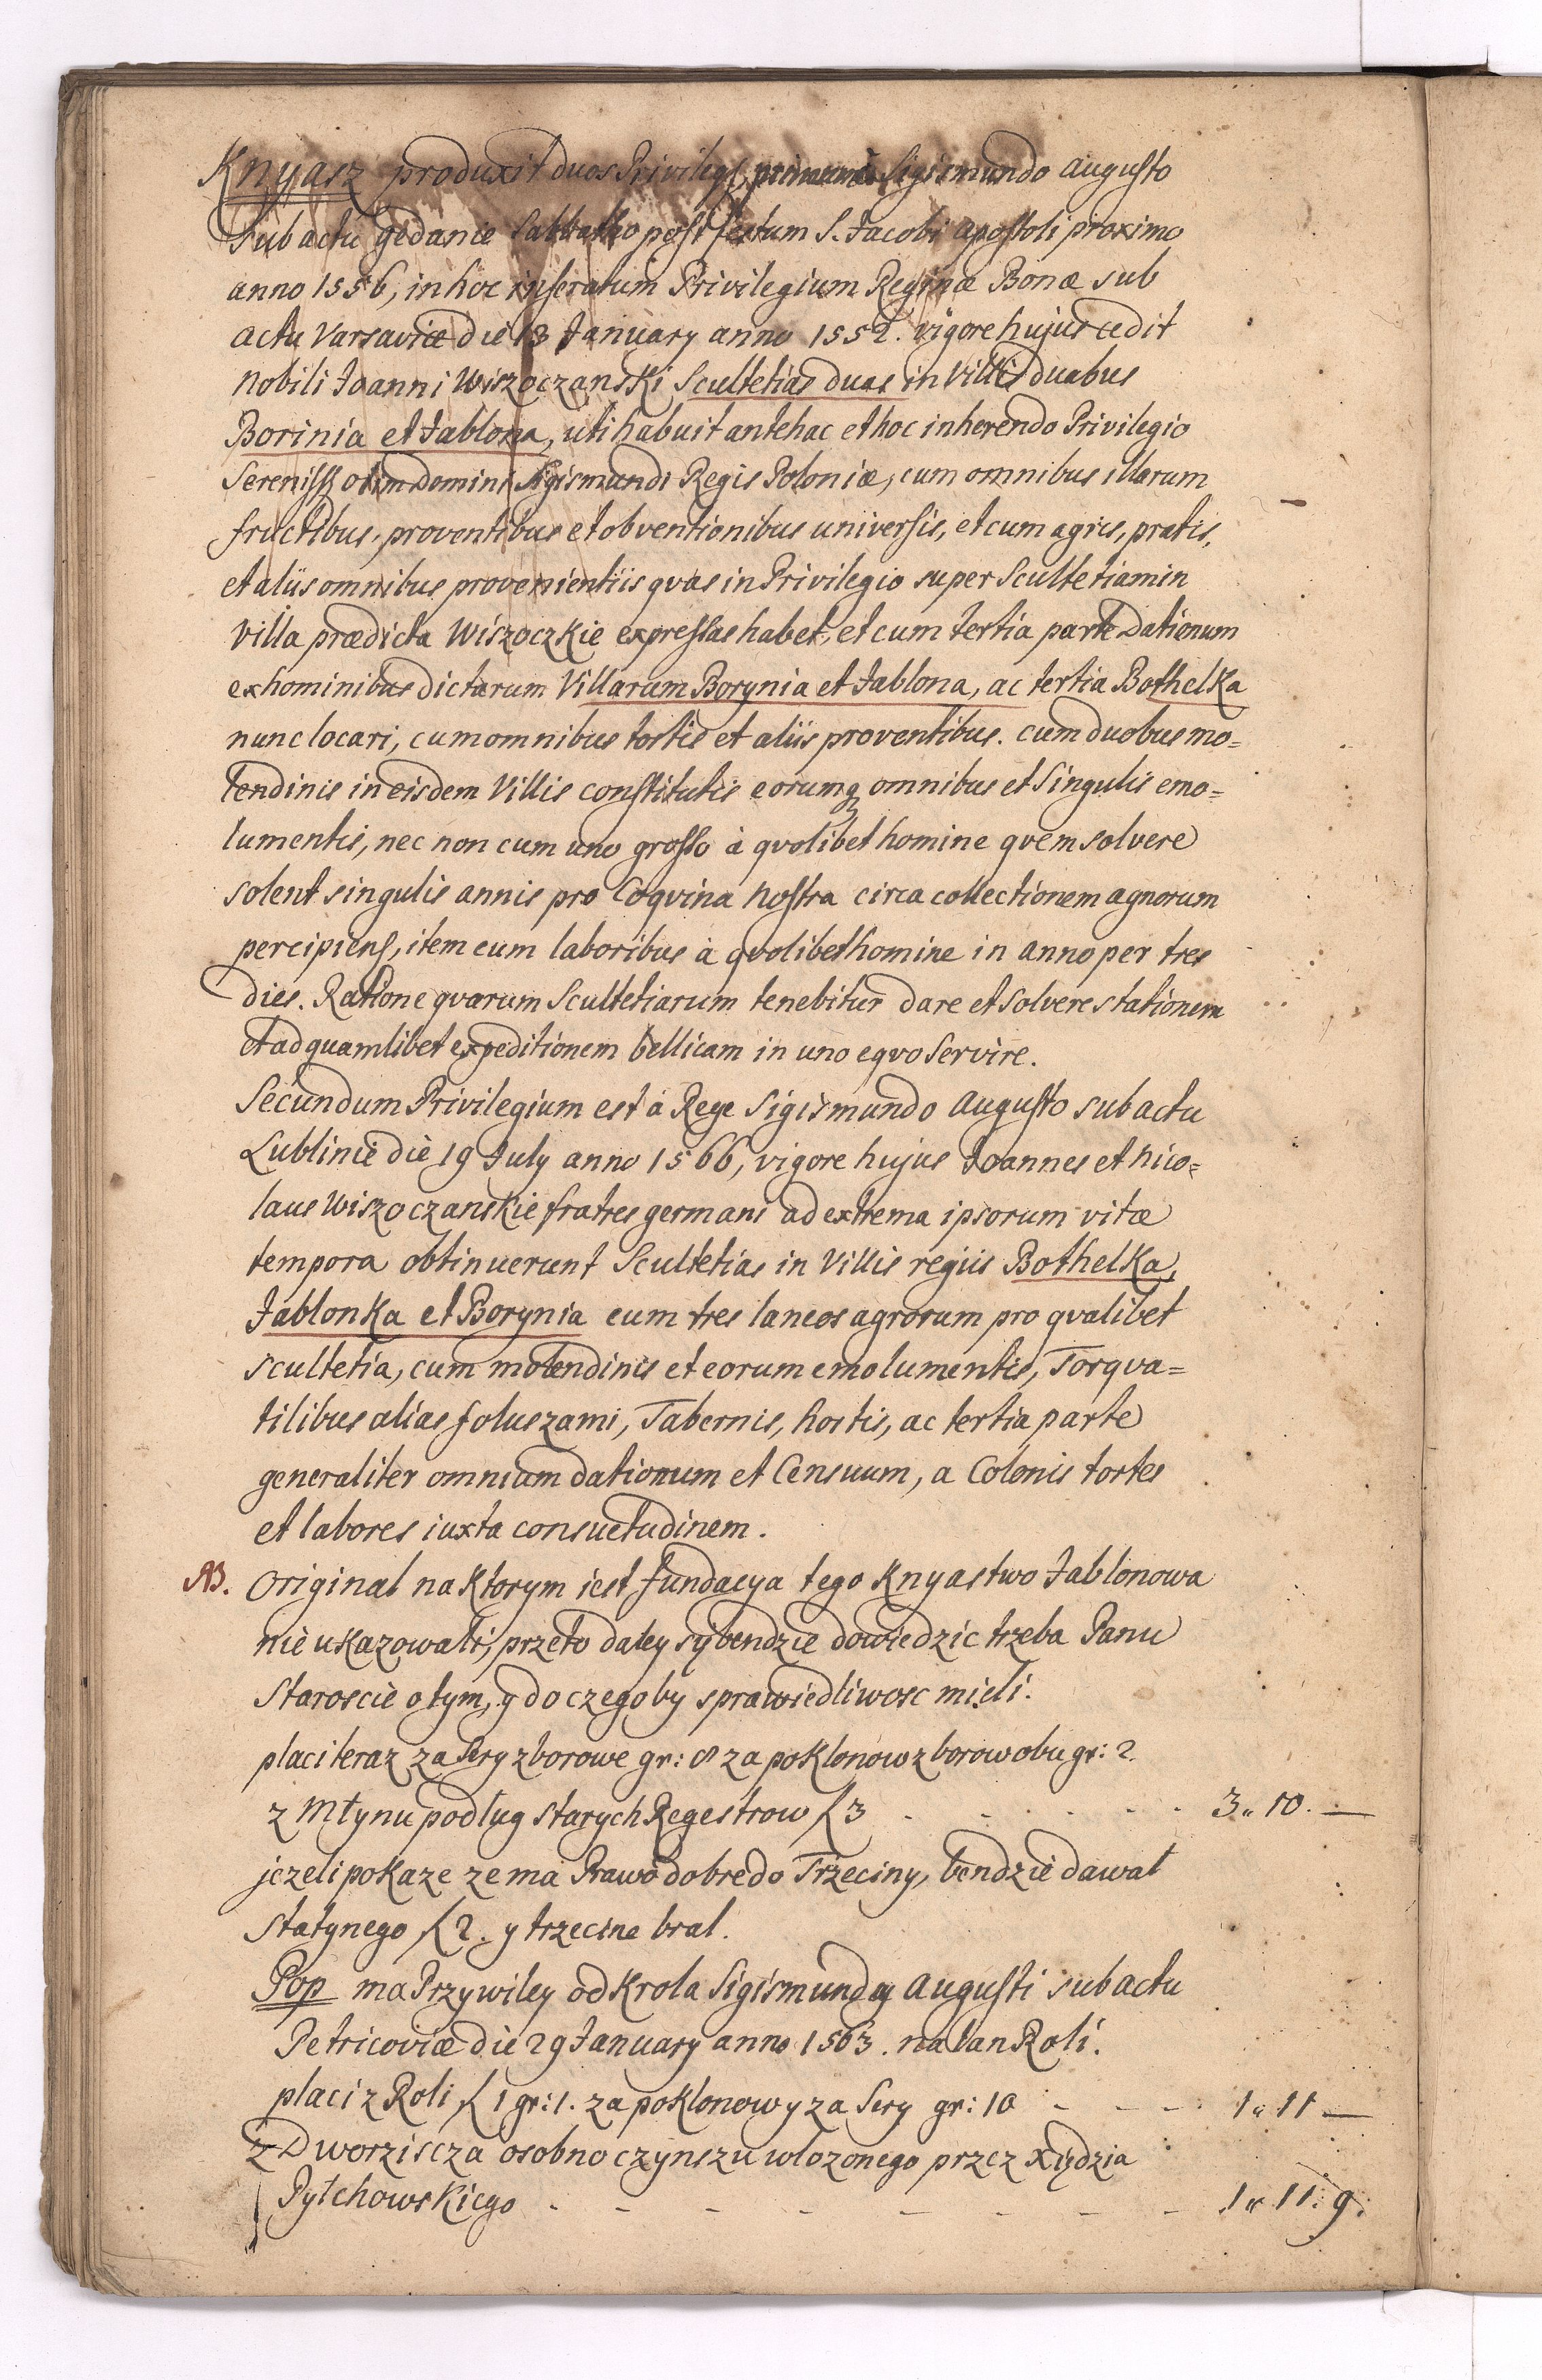 Knyasz produxit duos Privilegs, primum à Sigismundo augusto
sub actu gedanie Sabbatho post festum S. Jacobi apostoli proximo
anno 1556, in hoc inseratum Privilegium Reginæ Bonæ sub
actu Varsaviæ die 13 January anno 1552. vigore hujus cedit
nobili Joanni Wiszoczanski Scultetias duas in Villis duabus
Borinia et Jablona, uti habuit antehac et hoc inherendo Privilegio
Sereniss olim domini Sigismundi Regis Poloniæ, cum omnibus illarum
fructibus, proventibus et obventionibus universis, et cum agris, pratis,
et aliis omnibus provenientiis qvas in Privilegio super Scultetiam in
villa prædicta Wiszoczkie expressas habet, et cum tertia parte Dationum
ex hominibus dictarum Villarum Borynia et Jablona, ac tertia Bothelka
nunc locari, cum omnibus tortis et aliis proventibus. cum duobus mo=
lendinis in eisdem Villis constitutis eorumq omnibus et singulis emo=
lumentis, nec non cum uno grosso à qvolibet homine qvem solvere
solent singulis annis pro Coqvina nostra circa collectionem agnorum
percipiens, item cum laboribus à qvolibet homine in anno per tres
dies. Ratione qvarum Scultetiarum tenebitur dare et solvere stationem
et ad quamlibet expeditionem bellicam in uno eqvo servire.
Secundum Privilegium est à Rege Sigismundo Augusto sub actu
Lublinie die 19 July anno 1566, vigore hujus Joannes et Nico=
laus Wiszoczanskie fratres germani ad extrema ipsorum vitæ
tempora obtinuerunt Scultetias in Villis regiis Bothelka,
Jablonka et Borynia cum tres laneos agrorum pro qvalibet
scultetia, cum molendinis et eorum emolumentis, Torqva=
tilibus alias foluszami, Tabernis, hortis, ac tertia parte
generaliter omnium dationum et Censuum, a Colonis tortes
et labores iuxta consuetudinem.
NB. Original na ktorym iest fundacya tego Knyastwo Jablonowa
nie ukazowali, przeto daley sy bendzie dowiedzic trzeba Panu
Staroscie o tym, y do czego by sprawiedliwosc mieli.
placi teraz za Sery zborowe gr: 8 za poklonow zborow obu gr: 2.
z Młynu podług starych Regestrow f 3 - - - - - - 3 „ 10. —
jezeli pokaze ze ma Prawo dobre do Trzeciny, bendzie dawał
statynego f 2. y trzecine bral.
Pop ma Przywiley od Krola Sigismunda Augusti sub actu
Petricoviæ die 29 January anno 1563. na lan Roli.
placi z Roli f 1 gr: 1. za poklonow y za Sery gr: 10 - - - - 1 „ 11 —
z Dworziscza osobno czynszu wlozonego przez Xiędzia
Pylchowskiego - - - - - - - - 1 „ 11: 9.